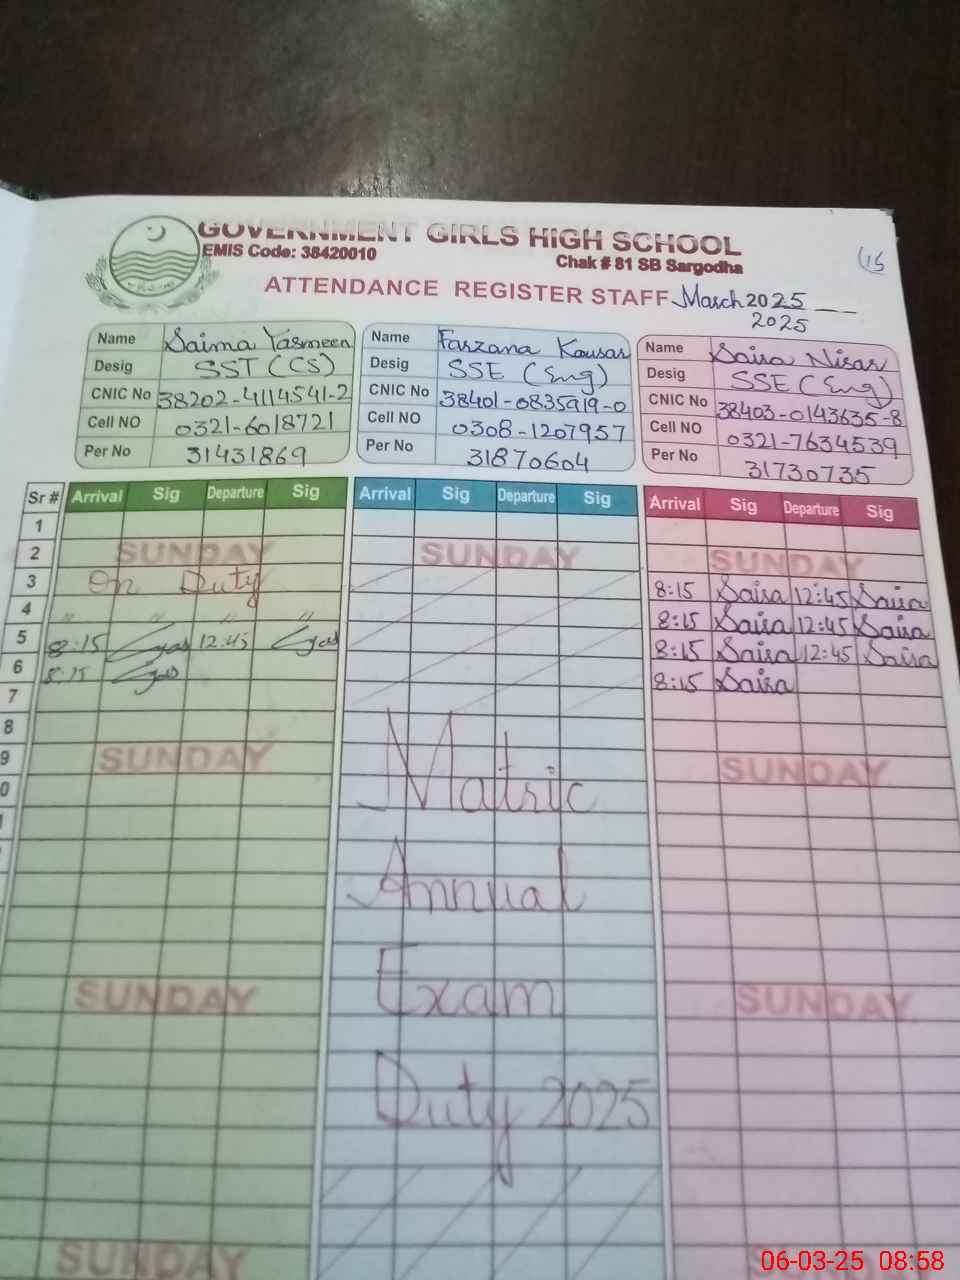 GOVERNMENT GIRLS HIGH SCHOOL
EMIS Code: 38420010
Chak # 81 SB Sargodha
15
ATTENDANCE REGISTER STAFF March 2025
2025
Name Saima Yasmeen
Desig SST (CS)
CNIC No 38202-4114541-2
Cell NO 0321-6018721
Per No 31431869
Name Farzana Kousar
Desig SSE (Eng)
CNIC No 38401-0835919-0
Cell NO 0308-1207957
Per No 31870604
Name Saira Nisar
Desig SSE (Eng)
CNIC No 38403-0143635-8
Cell NO 0321-7634539
Per No 31730735
Sr # Arrival Sig Departure Sig Arrival Sig Departure Sig Arrival Sig Departure Sig
1
2 SUNDAY SUNDAY SUNDAY
3 On Duty 8:15 Saira 12:45 Saira
4 " " " " 8:15 Saira 12:45 Saira
5 8:15 12:45 8:15 Saira 12:45 Saira
6 8:15 8:15 Saira
7
8
9 SUNDAY SUNDAY
0
Matric
Annual
Exam
SUNDAY SUNDAY
Duty 2025
SUNDAY
06-03-25 08:58